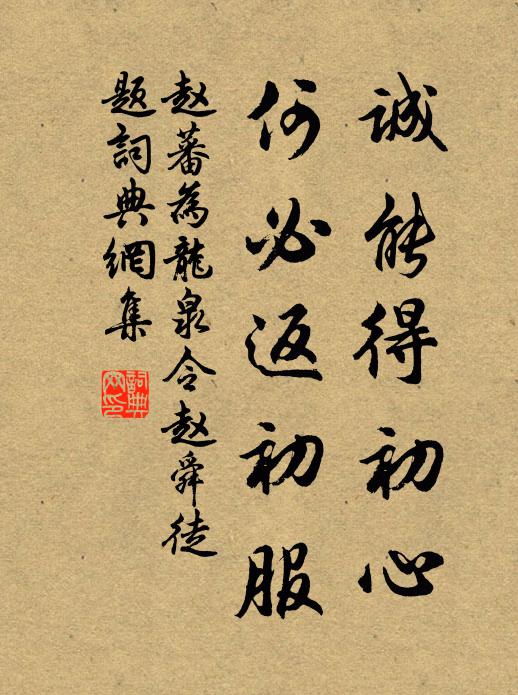 诚能得初心
何必返初服
赵蕃為龍泉令赵舜徒
题詞典網集
詞典
网印